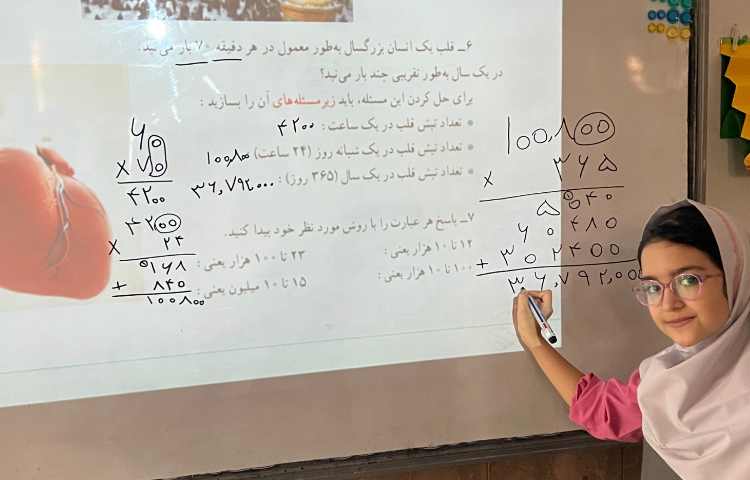 ۶ــ قلب یک انسان بزرگسال به‌طور معمول در هر دقیقه ۷۰ بار می‌تپد.
در یک سال به‌طور تقریبی چند بار می‌تپد؟
برای حل کردن این مسئله، باید زیرمسئله‌های آن را بسازید :
• تعداد تپش قلب در یک ساعت : ۴۲۰۰
• تعداد تپش قلب در یک شبانه روز (۲۴ ساعت) ۱۰۰,۸۰۰
• تعداد تپش قلب در یک سال (۳۶۵ روز) : ۳۶,۷۹۲,۰۰۰
۷ــ پاسخ هر عبارت را با روش مورد نظر خود پیدا کنید.
۱۲ تا ۱۰ هزار یعنی :
۲۳ تا ۱۰۰ هزار یعنی :
۱۰۰ تا ۱۰ هزار یعنی :
۱۵ تا ۱۰ میلیون یعنی :
۶۰
× ۷۰
۴۲۰۰
۴۲۰۰
× ۲۴
۱۶۸
+ ۸۴۰
۱۰۰۸۰۰
۱۰۰,۸۰۰
× ۳۶۵
۵۰۴۰
۶۰۴۸۰
+ ۳۰۲۴۰۰
۳۶,۷۹۲,۰۰۰